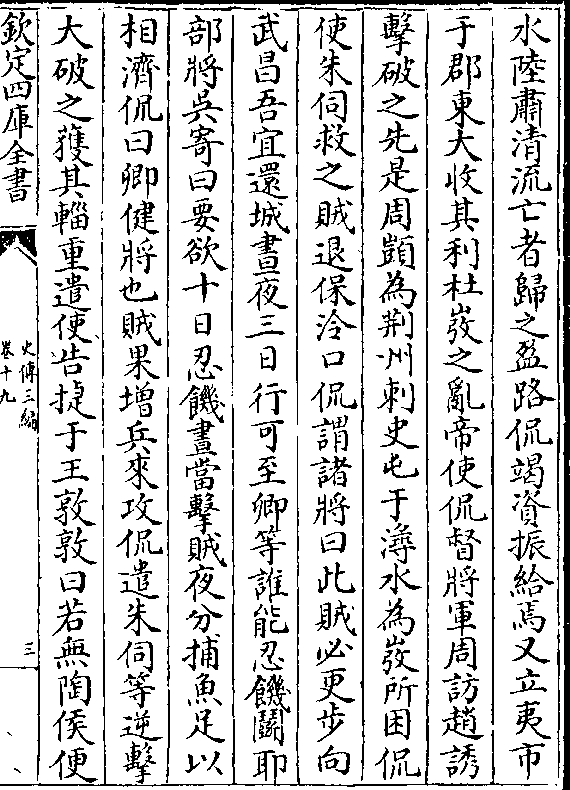 水陸肅清流亡者歸之盈路侃竭資振給焉又立夷市
于郡東大收其利杜弢之亂帝使侃督將軍周訪趙誘
擊破之先是周顗為荆州刺史屯于潯水為弢所困侃
使朱伺救之賊退保泠口侃謂諸將曰此賊必更步向
武昌吾宜還城晝夜三日行可至卿等誰能忍饑鬭耶
部將吳寄曰要欲十日忍饑晝當擊賊夜分捕魚足以
相濟侃曰卿健將也賊果增兵來攻侃遣朱伺等逆擊
大破之獲其輜重遣使告捷于王敦敦曰若無陶侯便
欽定四庫全書
史傳三編
卷十九
三